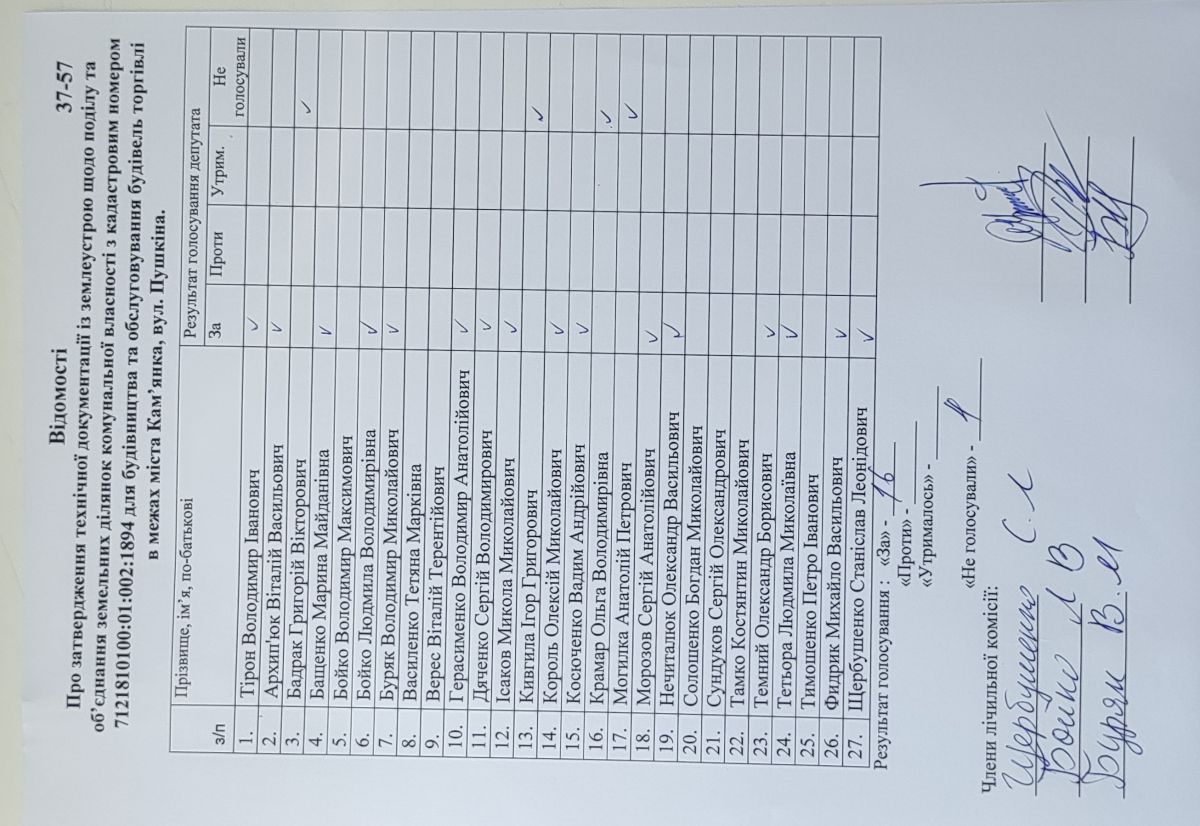 Відомості 37-57
Про затвердження технічної документації із землеустрою щодо поділу та
об’єднання земельних ділянок комунальної власності з кадастровим номером
7121810100:01:002:1894 для будівництва та обслуговування будівель торгівлі
в межах міста Кам’янка, вул. Пушкіна.
з/п Прізвище, ім’я, по-батькові Результат голосування депутата
За Проти Утрим. Не голосували
1. Тірон Володимир Іванович ✓
2. Архип'юк Віталій Васильович ✓
3. Бадрак Григорій Вікторович ✓
4. Бащенко Марина Майданівна ✓
5. Бойко Володимир Максимович
6. Бойко Людмила Володимирівна ✓
7. Буряк Володимир Миколайович ✓
8. Василенко Тетяна Марківна
9. Верес Віталій Терентійович
10. Герасименко Володимир Анатолійович ✓
11. Дяченко Сергій Володимирович ✓
12. Ісаков Микола Миколайович ✓
13. Кивгила Ігор Григорович ✓
14. Король Олексій Миколайович ✓
15. Косюченко Вадим Андрійович ✓
16. Крамар Ольга Володимирівна ✓
17. Могилка Анатолій Петрович ✓
18. Морозов Сергій Анатолійович ✓
19. Нечиталюк Олександр Васильович ✓
20. Солошенко Богдан Миколайович
21. Сундуков Сергій Олександрович
22. Тамко Костянтин Миколайович
23. Темний Олександр Борисович ✓
24. Тетьора Людмила Миколаївна ✓
25. Тимошенко Петро Іванович
26. Фидрик Михайло Васильович ✓
27. Щербушенко Станіслав Леонідович ✓
Результат голосування : «За» - 16
«Проти» -
«Утрималось» -
«Не голосували» -
Члени лічильної комісії:
Щербушенко С.Л
Бойко Л В
Буряк В.М